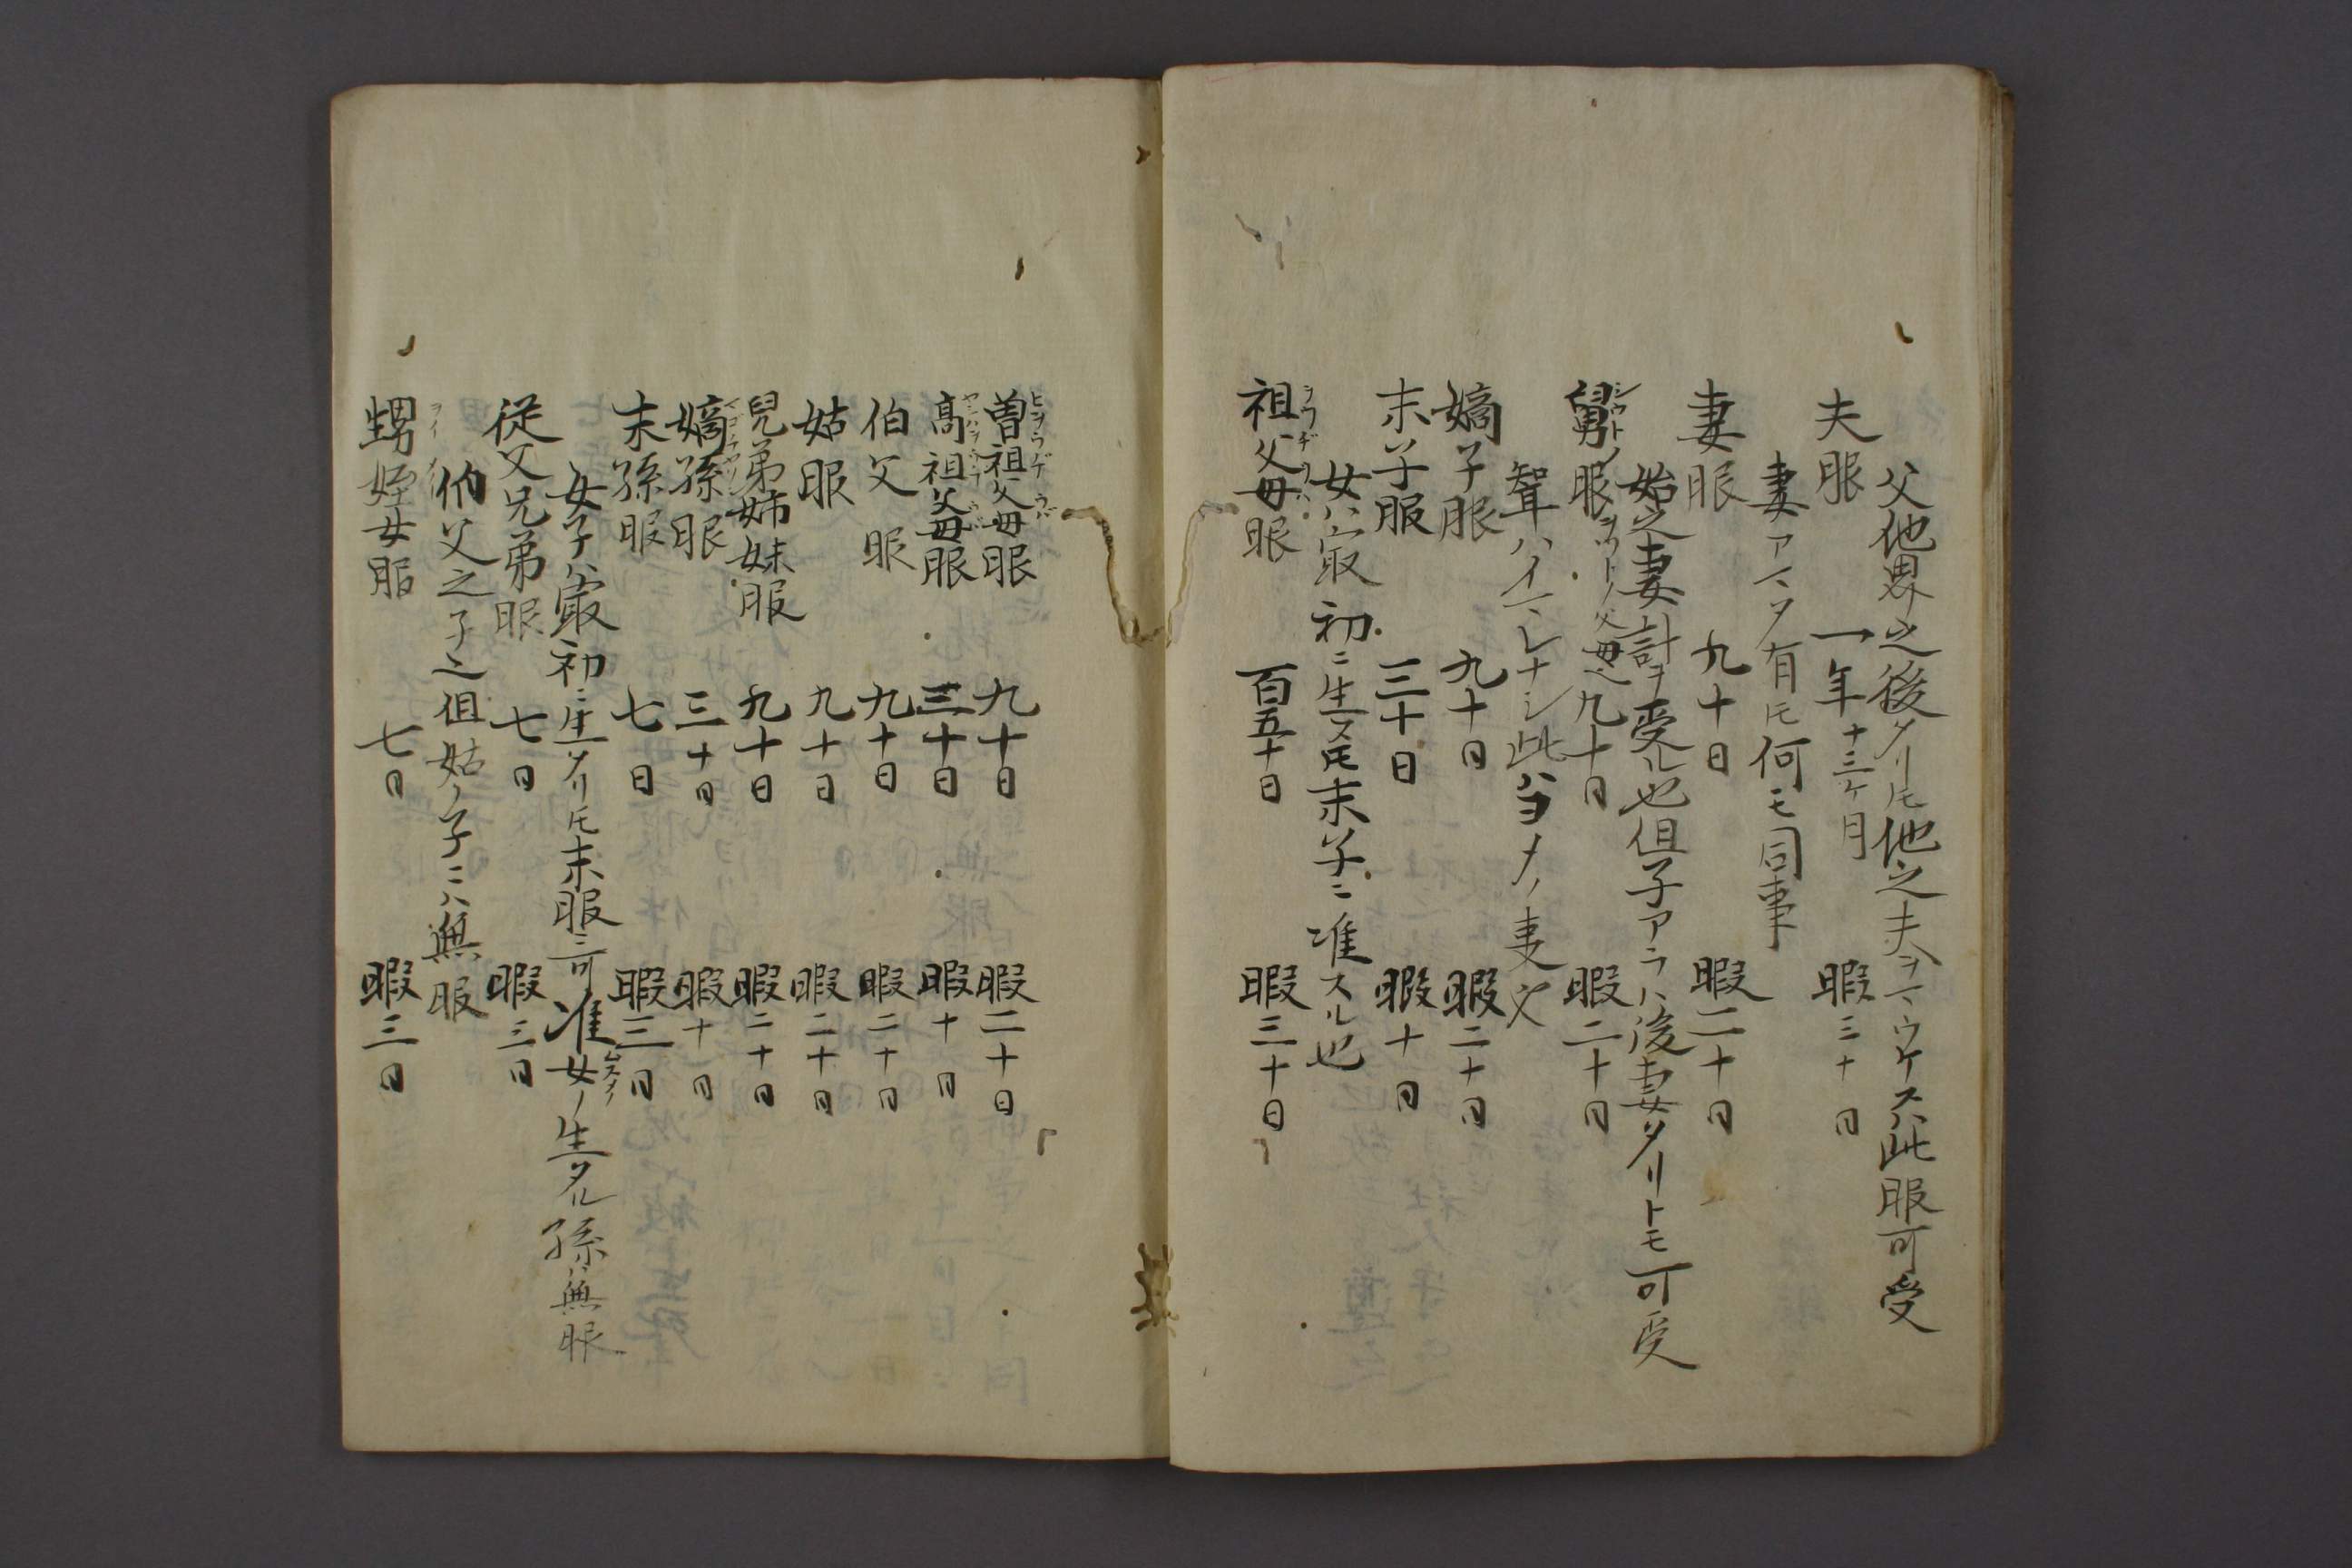 父他界之後タリ𪜈他之夫ヲマウケスハ此服可受
夫服　一年十三ケ月　暇三十日
妻アマタ有𪜈何モ同事
妻服　九十日　暇二十日
始之妻計ヲ受ル也但子アラハ後妻タリトモ可受
舅服ヲツトノ父母也九十日　暇二十日
シウトノ
聟ハイマレナシ此ハヨメノ事
嫡子服　九十日　暇二十日
末子服　三十日　暇十日
女ハ最初ニ生ス𪜈末子ニ准スル也
祖父母服　百五十日　暇三十日
ヲウヂウハ
曽祖父母服　九十日　暇二十日
ヒヲウヂウバ
高祖父母服　三十日　暇十日
伯父服　九十日　暇二十日
姑服　九十日　暇二十日
兄弟姉妹服　九十日　暇二十日
嫡孫服　三十日　暇十日
末孫服　七日　暇三日
女子ハ最初ニ生タリ𪜈末服ニ可准女ノ生タル孫ハ無服
ムスメノ
従父兄弟服　七日　暇三日
伯父之子也但姑ノ子ニハ無服
甥姪女服　七日　暇三日
ヲイ